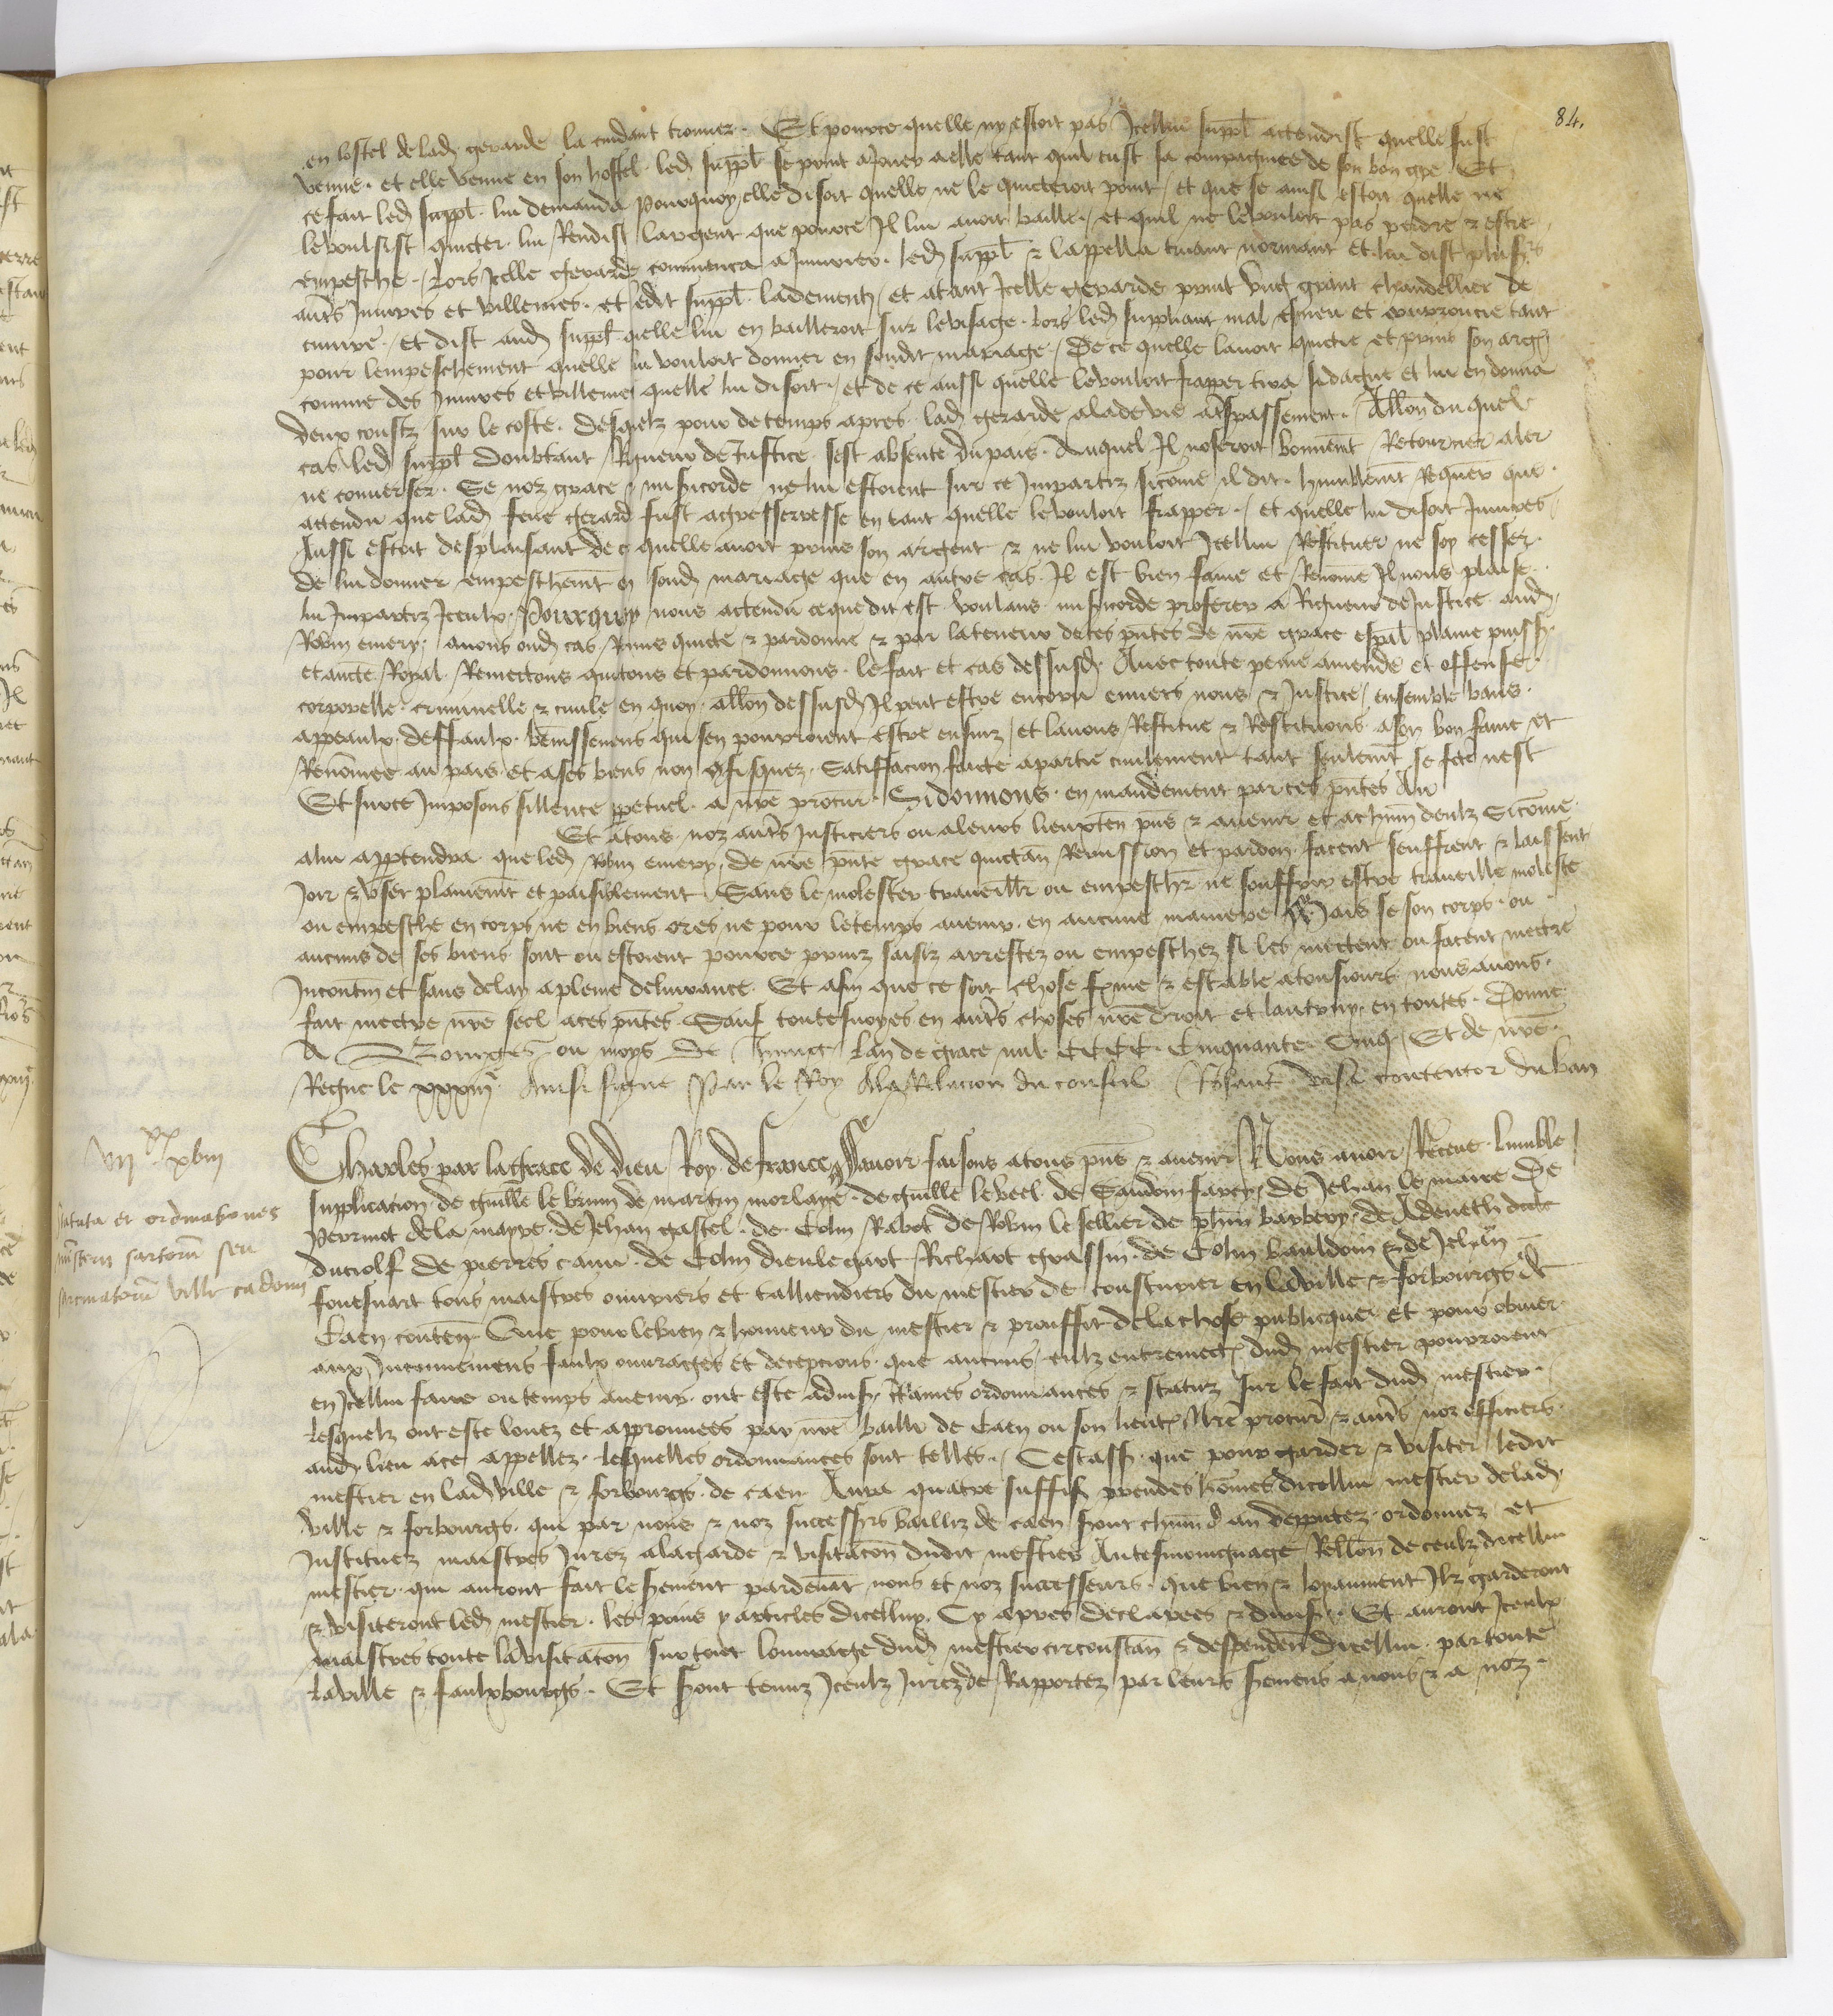 84.
en lostel de lad gerarde la cuidant trouver. Et pource quelle ny estoit pas Icellui suppl attendist quelle fust
venue. et elle venue en son hostel led suppl se print a Jouer a elle tant quil eust sa compaignee de son bon gre Et
ce fait led suppl. lui demanda pourquoy elle disoit quelle ne le quicteroit point / et que se ainsi estoit quelle ne
le voulsist quicter lui Rendist largent que pource Il lui avoit baille. et quil ne le vouloit pas perdre & estre
empesche. / Lors Icelle gerarde commenca a Iniurier led suppl & lappella truant normant et lui dist plus
autrs Iniures et villenies. et ledit suppl. la dementy / et atant Icelle gerarde print ung grant chandellier de
cuivre / et dist aud suppl quelle lui en bailleroit sur le visage. lors led suppliant mal esmeu et courroucie tant
pour lempeschement quelle lui vouloit donner en sondit mariage / De ce quelle lavoit quicte et prins son argt
comme des Iniures et villenies quelle lui disoit. / et de ce aussi quelle le vouloit frapper tira sa dague et lui en donna
deux coustz sur le coste. desquelz pour de temps apres lad gerarde ala de vie a trspassement. A lloin du quel
cas led suppl doubtant Rigueur de Justice sest absente du pais. Auquel Il noseroit bonnemt Retourner aler
ne converser. Se noz grace & misicorde ne lui estoient sur ce Impartiz sicome il dit. humblemt Requer que
attendu que lad feue gerard fust agresserresse en tant quelle le vouloit frapper. / et quelle lui disoit Iniures
Aussi estoit desplaisant de ce quelle avoit prins son argent & ne lui vouloit Icellui Restituer ne soy cesser
de lui donner empeschemt en sond mariage que en autre cas Il est bien fame et Renome Il nous plaise
lui Impartir Iceulx. Pourquoy nous attendu ce que dit est voulans misicorde proferer a Rigueur de Justice aud
Robin emery. avons oud cas Remis quicte & pardonne & par la teneur de ces pntes de nre grace espal plaine puiss
et aucte Royal Remectons quitons et pardonnons. le fait et cas dessusd Avec toute peine amende et offense
corporelle criminelle & civile en quoy. alloin dessusd Il peut estre encoru envers nous & Justice / ensemble bans
appeaulx. deffaulx. banissemens qui sen pourroient estre ensuiz / et lavons Restitue & Restituons a son bon fame et
Renomee au pais. et a ses biens non cfisquez. Satiffacion faicte a partie civilement tant seulemt se fcte nest
Et sur ce Imposons sillence ppetuel a nre procur. Si donnons en mandement par ces pntes Au
Et a tous noz autrs Justiciers ou a leurs lieuxten pns & avenir et a chun deulx Sicome
a lui apptendra que led Robin emery. de nre pnte grace quictan Remission et pardon facent seuffrent & laissent
Joir & user plainemt et paisiblement Sans le molester travaillr ou empeschr ne souffrir estre travaille moleste
ou empesche en corps ne en biens ores ne pour le temps avenir. en aucune maniere Mais se son corps. ou
aucuns de ses biens sont ou estoient pource prins saisiz arrestez ou empeschez si les mectent ou facent mectre
Incontin et sans delay a pleine delivrance. Et afin que ce soit chose ferme & estable a tousiours nous avons
fait mectre nre seel a ces pntes Sauf toutesvoyes en autrs choses nre droit et lautruy en toutes. Donne
A Bourges ou moys de Jung lan de grace mil CCCC. Cinquante Cinq. Et de nre
Regne le xxxiije Ainsi signe Par le Roy A la Relacion du conseil Rolant visa contentor du ban
Charles par la grace de dieu Roy de france Savoir faisons a tous pns & avenir Nous avoir Receue lumble
supplicacion de guille le brun de martin morlaye. de guille le veel de Sandom favery, de Jehan le maire De
Perrinot de la mayre. de Jehan gastel. de Colin Rabot de Robin le sellier de phin barbery. de Adeneth
duriolf De pierres cauu. de Colin dieulegart Richart grassin. de Colin bauldoin & de Jehan
fouesnart tous maistres ouvriers et talliendiers du mestier de cousturier en la ville & forbourgs de
Caen conten Que pour le bien & honneur du mestier & prouffit de la chose publicque et pour obvier
aux Inconveniens faulx ouvrages et decepcions que aucuns eulx entremect dud mestier pourroient
en Icellui faire ou temps avenir. ont este advis ctaines ordonnances & statuz sur le fait dud mestier
Lesquelz ont este louez et approuvees par nre bailli de Caen ou son lieut Nre procur & autrs noz officiers
aud lieu a ce appellez. Lesquelles ordonnances sont telles. / Cestass. que pour garder & visiter ledit
mestier en lad ville & forbourgs de caen Aura quatre suffis preudes homes dicellui mestier de lad
ville & forbourgs. qui par nous & noz successrs bailliz de caen sront chun an depputez ordonnez et
Instituez maistres Jurez a la garde & visitacon dudit mestier Au tesmoingnage Rellon de ceulx dicellui
mestier qui auront fait le sement pardevat nous et noz successeurs. que bien & loyaument Ilz garderont
& visiteront led mestier. les poins & articles dicellui. Cy apres declarees & divis. Et auront Iceulx
maistres toute la visitacon sur tout louvrage dud mestier circonstan & despenden dicellui. par toute
la ville & faulxbourgs. Et sront tenuz Iceulx Jurez de Rapporter par leurs semens a nous & a noz
vij xx xviij
Statuta et ordinationes
misterii sartorum seu
sarcinatorum ville cadomi